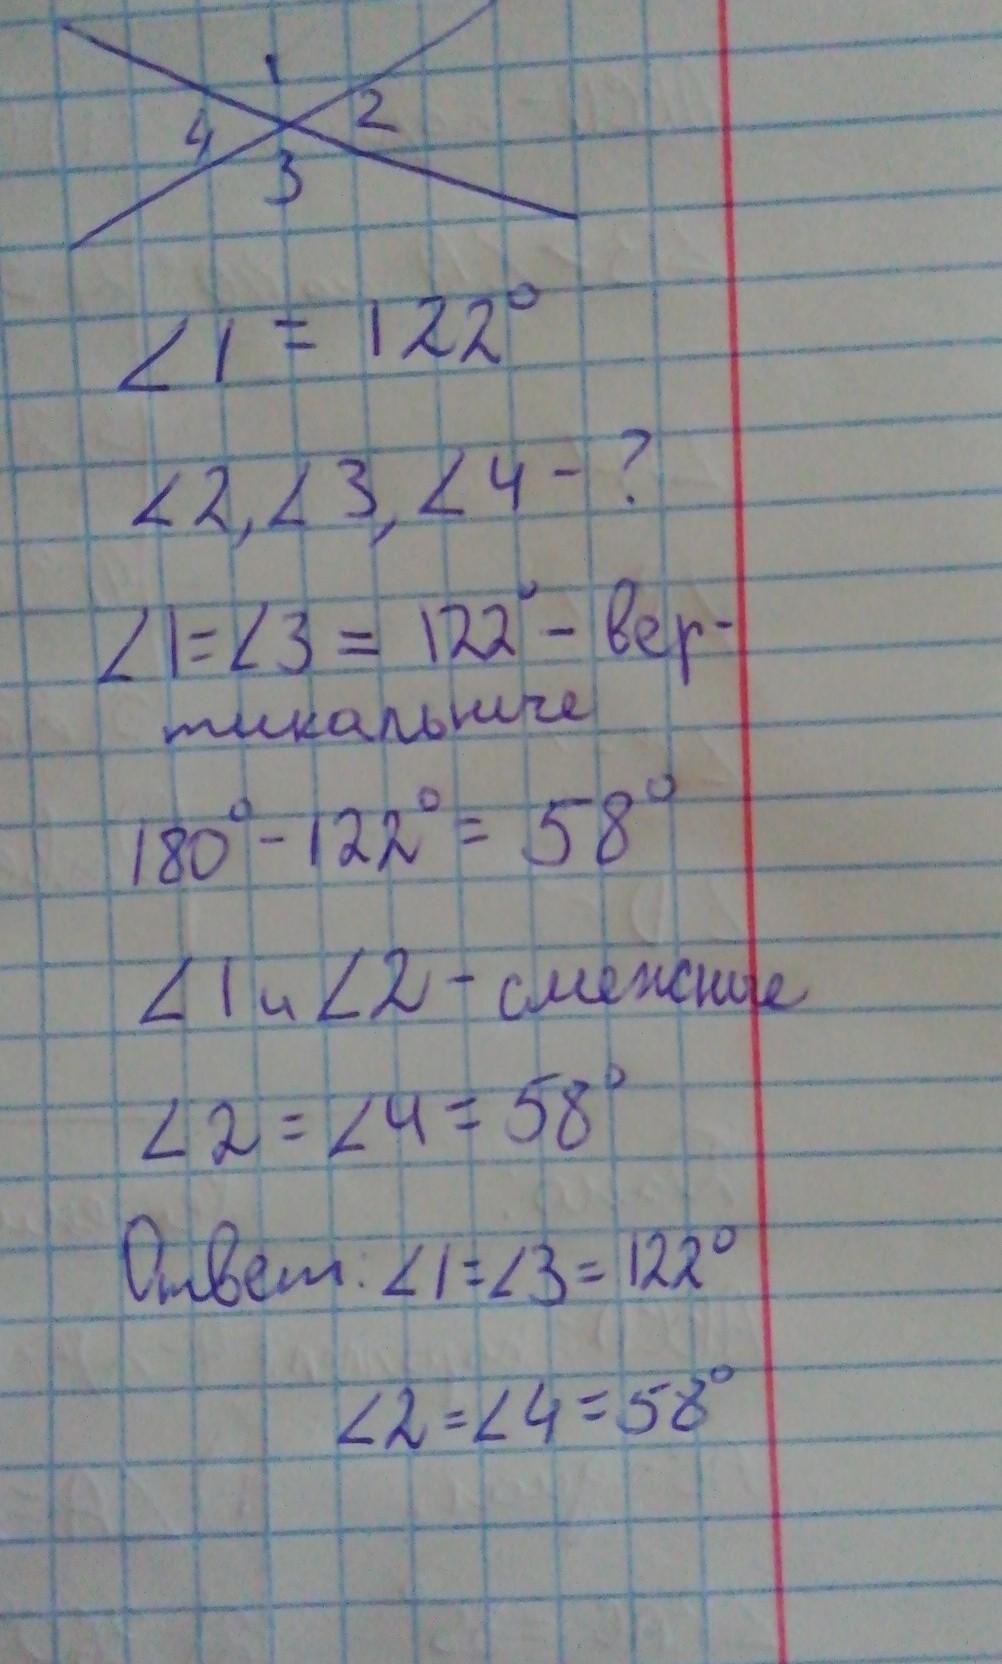 1
4 2
3
∠1 = 122°
∠2, ∠3, ∠4 - ?
∠1 = ∠3 = 122° - вер-
тикальные
180° - 122° = 58°
∠1 и ∠2 - смежные
∠2 = ∠4 = 58°
Ответ: ∠1 = ∠3 = 122°
∠2 = ∠4 = 58°